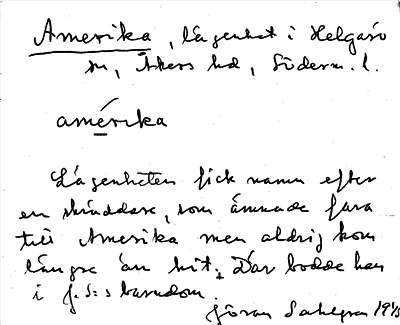 Amerika, lägenhet i Helgarö
sn, Åkers hd, Söderm. l.
amérika
Lägenheten fick namn efter
en skräddare, som ämnade fara
till Amerika men aldrig kom
längre än hit. Där bodde han
i J. S:s barndom.
Göran Sahlgren 19